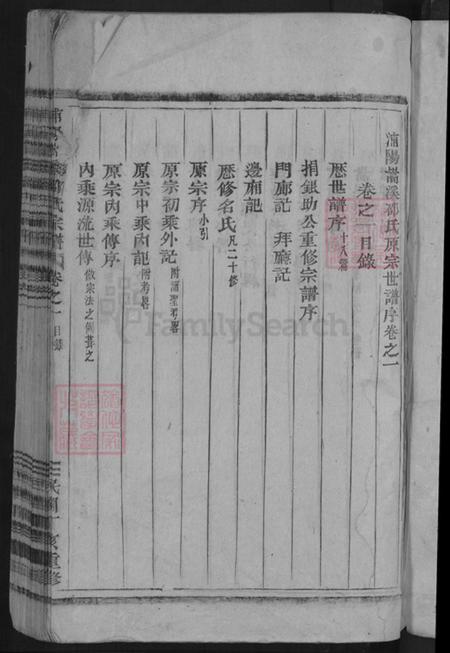 浦陽嵩溪邵氏原宗世譜序卷之一
卷之一目錄
歷世譜序十八篇
捐銀助公重修宗譜序
門廊記 拜廳記
邊廂記
歷修名氏凡二十修
原宗序小引
原宗初乘外記附諸聖考畧
原宗中乘內記附考畧
原宗內乘傳序
內乘源流世傳倣宗法之例葺之
氏宗譜
卷之一
目錄
重修
FamilySearch